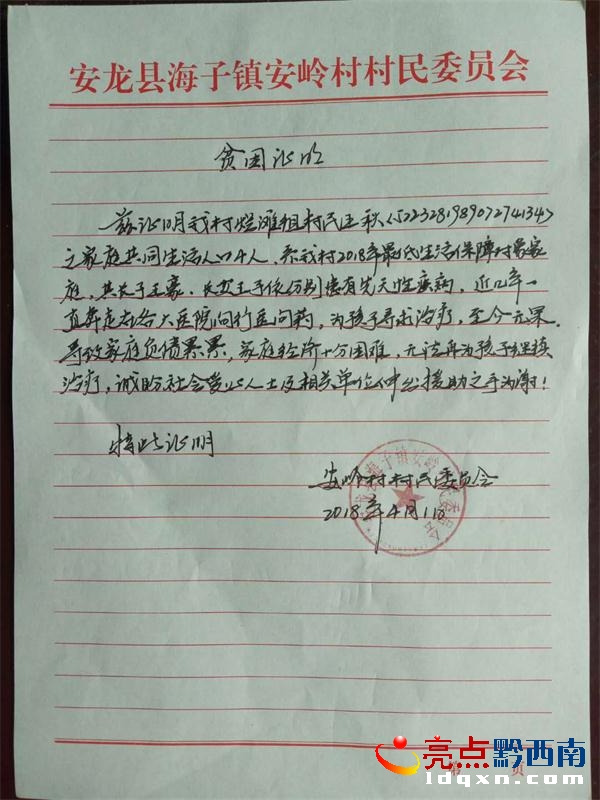 安龙县海子镇安岭村村民委员会
贫困证明
兹证明我村烂滩组村民王秋(522328198907274134)
之家庭共同生活人口4人,系我村2018年最低生活保障对象家
庭,其长子王豪、长女王子依分别患有先天性疾病,近几年一
直奔走于各大医院间行医问药,为孩子寻求治疗,至今无果.
导致家庭负债累累,家庭经济十分困难,无法再为孩子继续
治疗,诚盼社会爱心人士及相关单位伸出援助之手为谢!
特此证明
安岭村村民委员会
2018年4月1日
安龙县海子镇安岭村村民委员会
第 页
亮点黔西南
ldqxn.com